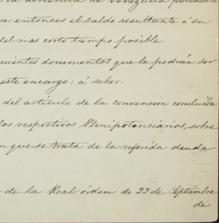 la America de Venezuela
que entonces el saldo resultante á su
del mas corto tiempo posible.
documentos que le podrán ser
este encargo: á saber.
del artículo de la convencion concluida
los respectivos Plenipotenciarios, sobre
en que se trata de la referida deuda
de la Real órden de 22 de Septiembre
de